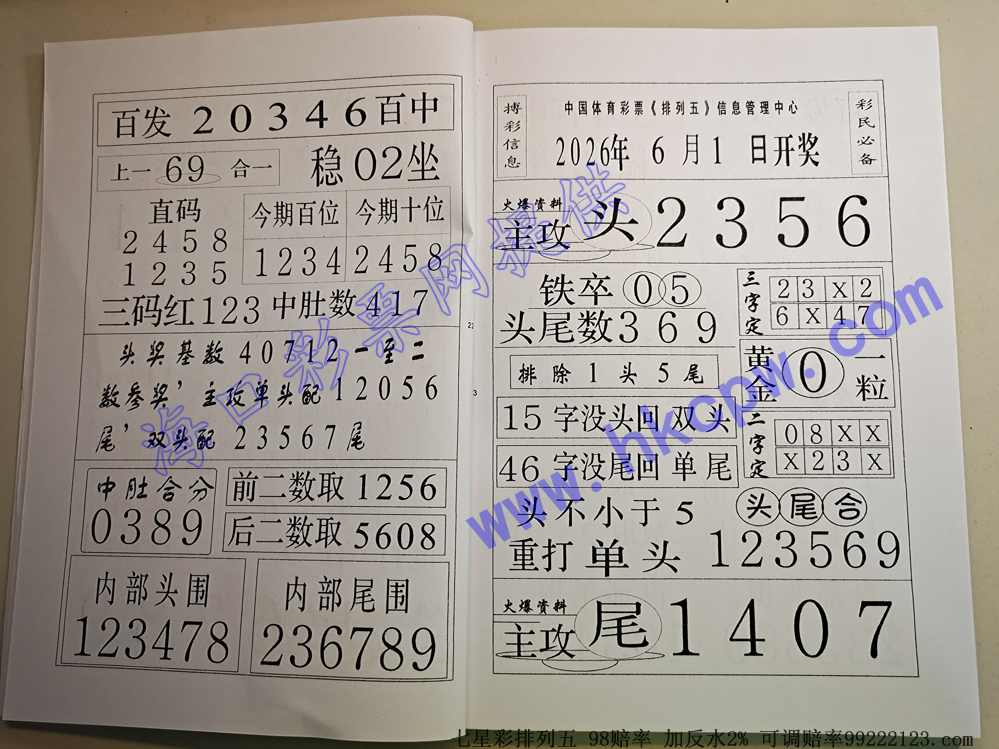 百发20346百中
上一 69 合一
稳02坐
直码
2458
1235
今期百位
1234
今期十位
2458
三码红123中肚数417
头奖基数40712一至二
数参奖’主攻单头配12056
尾’双头配23567尾
中肚合分
0389
前二数取1256
后二数取5608
内部头围
123478
内部尾围
236789
搏彩信息
中国体育彩票《排列五》信息管理中心
2026年 6月1日开奖
彩民必备
火爆资料
主攻 头 2356
铁卒 05
头尾数369
三字定
2 3 X 2
6 X 4 7
排除1头5尾
黄金 0 一粒
15字没头回双头
46字没尾回单尾
二字定
0 8 X X
X 2 3 X
头不小于5 头尾合
重打单头123569
火爆资料
主攻 尾 1407
海口彩票网提供
www.hkcpw.com
七星彩排列五 98赔率 加反水2% 可调赔率99222123.com